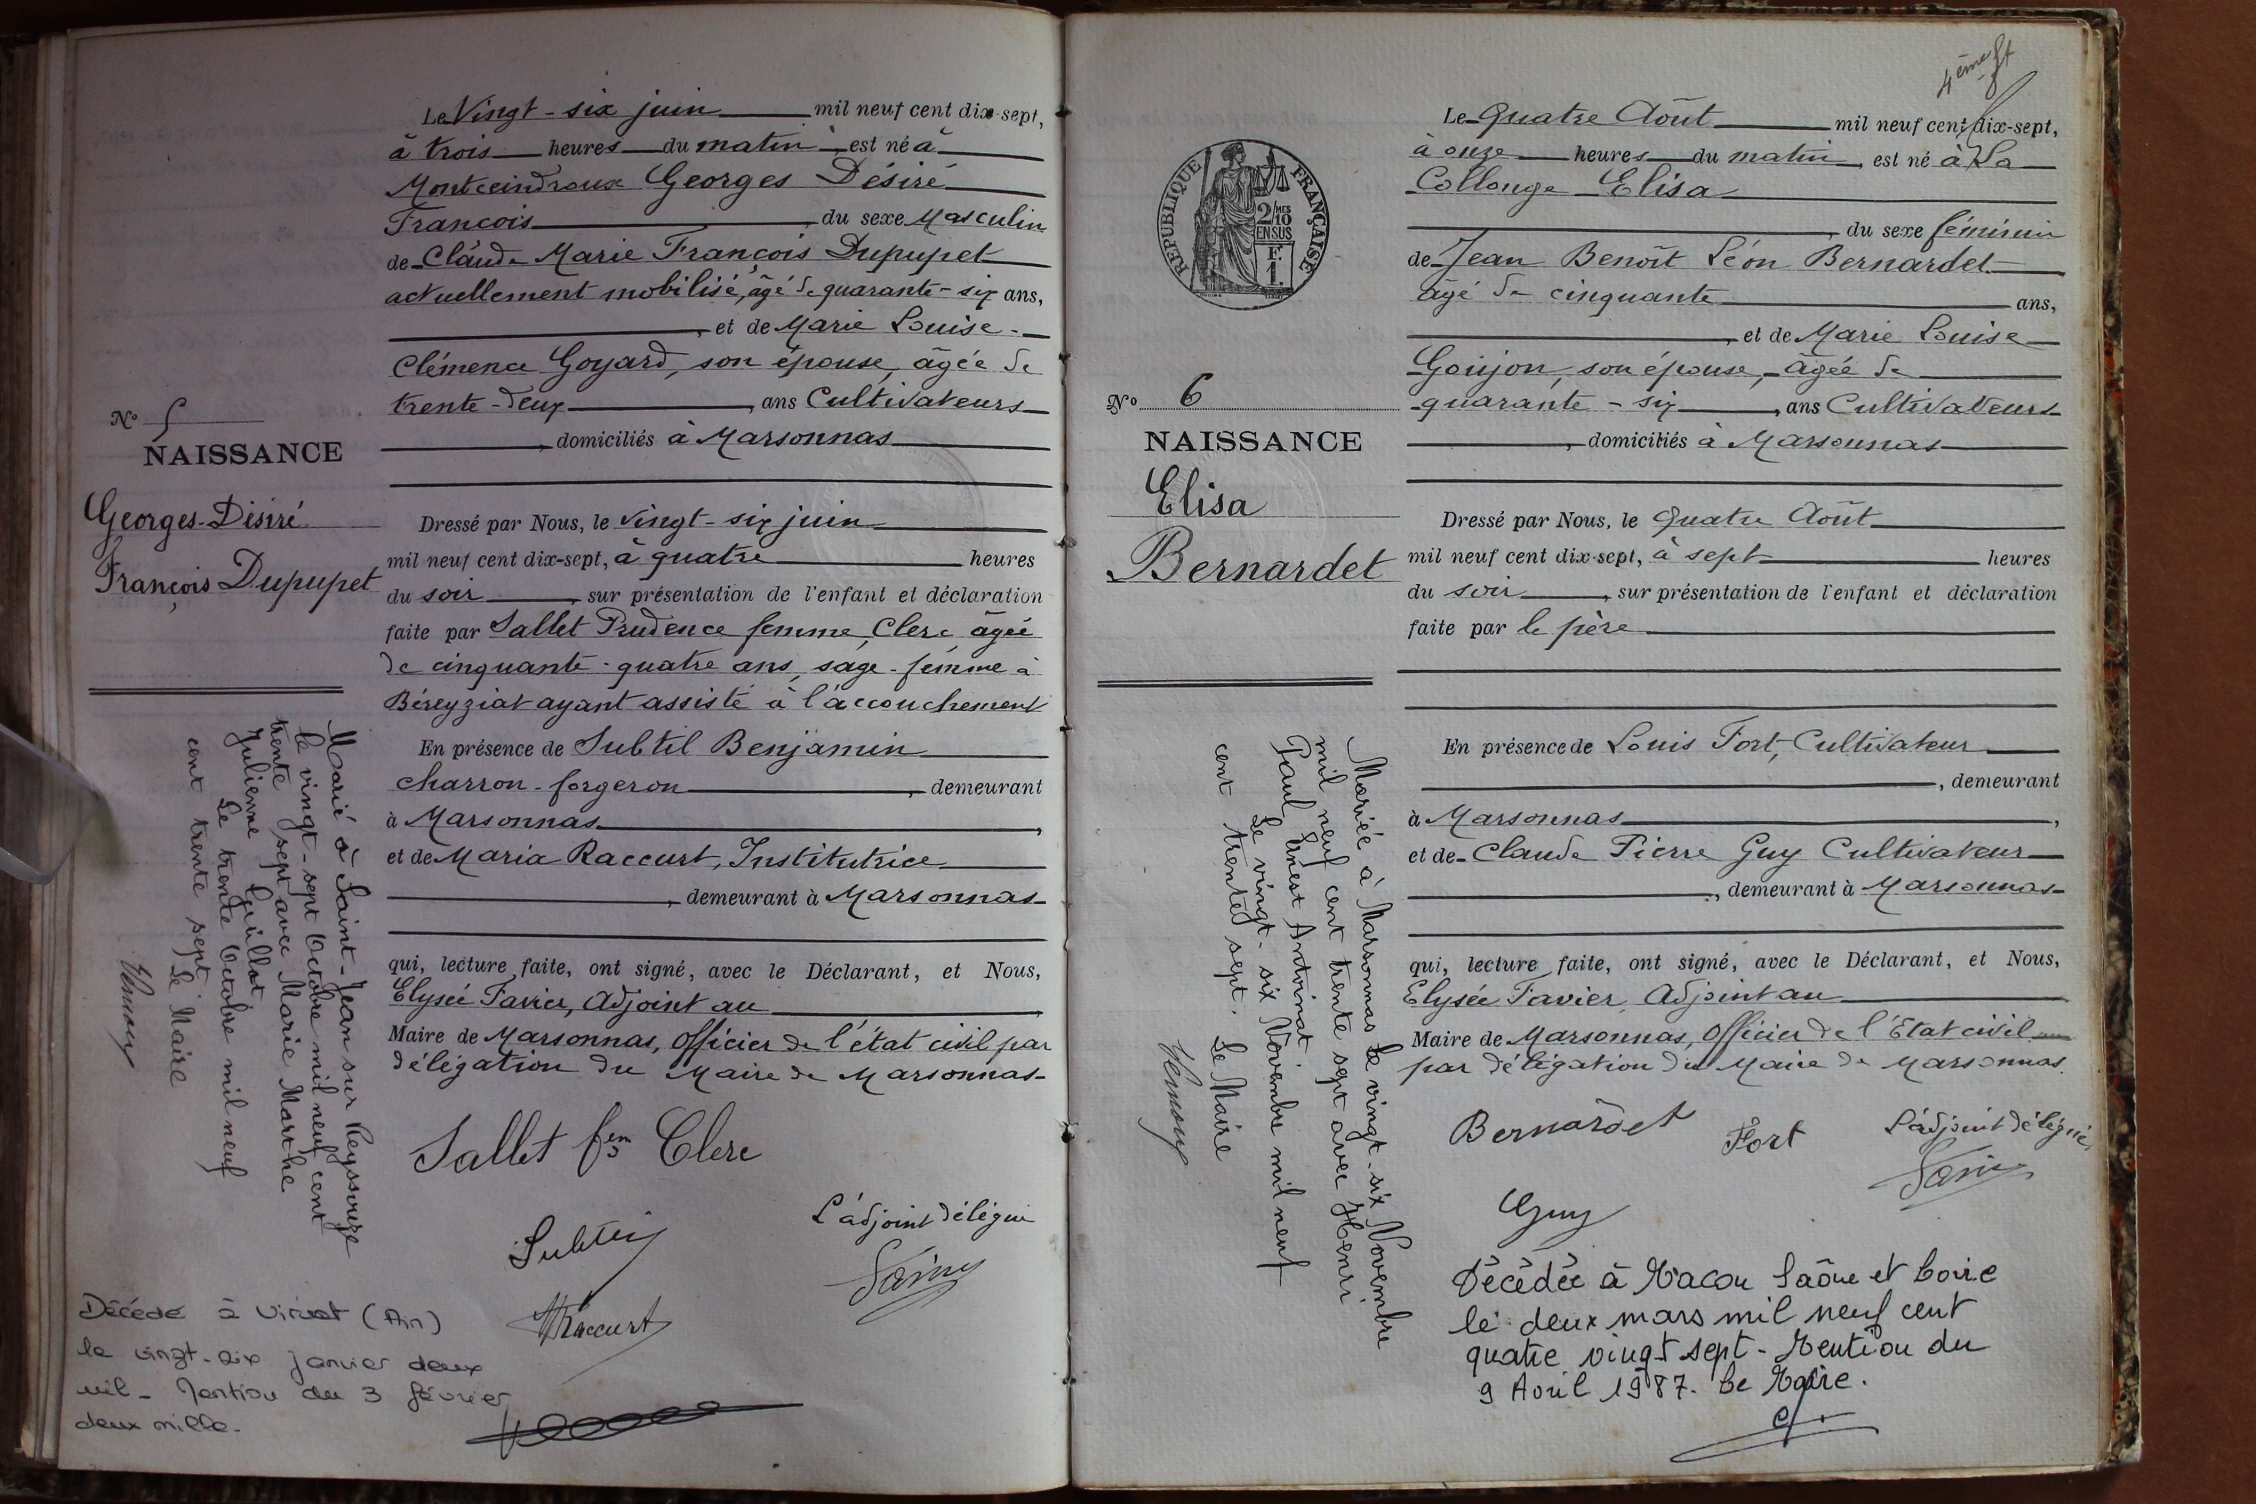 Le Vingt-six juin mil neuf cent dix-sept,
à trois heures du matin, est né à
Montceindroux Georges Désiré
François, du sexe Masculin
de Claude Marie François Dupupet
actuellement mobilisé, âgé de quarante-six ans,
, et de Marie Louise
Clémence Goyard, son épouse, âgée de
trente-deux, ans Cultivateurs
, domiciliés à Marsonnas
N° 5
NAISSANCE
Georges-Désiré
François Dupupet
Dressé par Nous, le vingt-six juin
mil neuf cent dix-sept, à quatre heures
du soir, sur présentation de l'enfant et déclaration
faite par Sallet Prudence femme Clerc, âgée
de cinquante-quatre ans, sage-femme à
Béreyziat ayant assisté à l'accouchement
En présence de Subtil Benjamin
charron-forgeron, demeurant
à Marsonnas,
et de Maria Raccurt, Institutrice
, demeurant à Marsonnas
qui, lecture faite, ont signé, avec le Déclarant, et Nous,
Elysée Favier, Adjoint au
Maire de Marsonnas, Officier de l'état civil par
délégation du Maire de Marsonnas
Sallet fem Clerc
Subtil
L'adjoint délégué
MRaccurt
Marié à Saint-Jean sur Reyssouze
le vingt-sept Octobre mil neuf cent
trente sept avec Marie Marthe
Julienne Guillot
Le trente Octobre mil neuf
cent trente sept. Le Maire
Décédé à Viriat (Ain)
le vingt-six janvier deux
mil - Mention du 3 février
deux mille.
4ème ft
Le Quatre Août mil neuf cent dix-sept,
à onze heures du matin, est né à La
Collonge Elisa
, du sexe féminin
de Jean Benoît Léon Bernardet
âgé de cinquante ans,
, et de Marie Louise
Goujon, son épouse, âgée de
quarante-six, ans Cultivateurs
, domiciliés à Marsonnas
REPUBLIQUE FRANÇAISE
2/10 MES
EN SUS
F.
1.
N° 6
NAISSANCE
Elisa
Bernardet
Dressé par Nous, le Quatre Août
mil neuf cent dix-sept, à sept heures
du soir, sur présentation de l'enfant et déclaration
faite par le père
En présence de Louis Fort, Cultivateur
, demeurant
à Marsonnas,
et de Claude Pierre Guy Cultivateur
, demeurant à Marsonnas
qui, lecture faite, ont signé, avec le Déclarant, et Nous,
Elysée Favier, Adjoint au
Maire de Marsonnas, Officier de l'Etat civil
par délégation du Maire de Marsonnas.
Bernardet
Fort
L'adjoint délégué,
Guy
Mariée à Marsonnas le vingt-six Novembre
mil neuf cent trente sept avec Henri
Paul Ernest Antoinat
Le vingt-six Novembre mil neuf
cent trente sept. Le Maire
Décédée à Macon Saône et Loire
le deux mars mil neuf cent
quatre vingt sept - Mention du
9 Avril 1987. Le Maire.